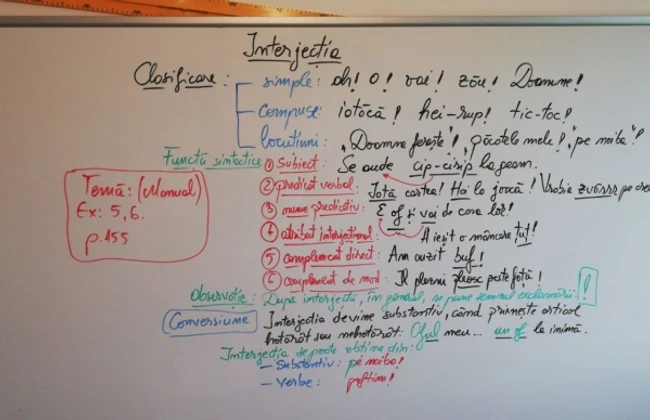 Interjecția
Clasificare: simple: ah! O! vai! zău! Doamne!
compuse: iotăcă! hei-rup! tic-toc!
locuțiuni: „Doamne ferește"! „păcatele mele"! „pe naiba"!
Funcții sintactice
① subiect: Se aude cip-cirip la geam.
② predicat verbal: Iată cartea! Hai la joacă! Vrabia zvârrr pe
③ nume predicativ: E of și vai de casa lor!
④ atribut interjecțional: A ieșit o mâncare țuț!
⑤ complement direct: Am auzit buf!
⑥ complement de mod: Îl plesni pleosc peste față!
Temă: (Manual)
Ex: 5, 6.
p. 155
Observație: După interjecții, în general, se pune semnul exclamării !
Conversiune Interjecția devine substantiv, când primește articol
hotărât sau nehotărât: Oful meu... un of la inimă.
Interjecția se poate obține din:
- Substantiv: pe naiba!
- Verbe: poftim!